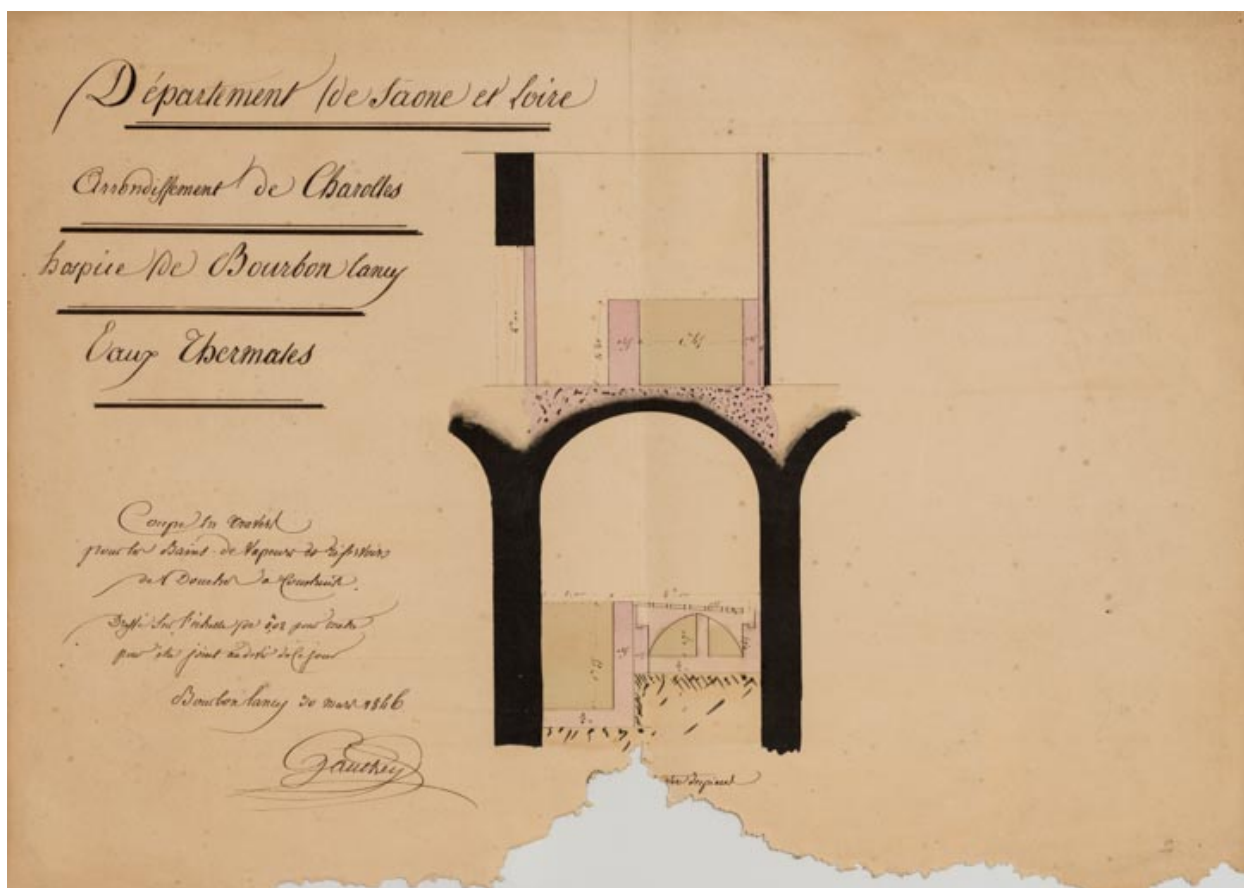 Département de Saone et Loire
Arrondissement de Charolles
hospice de Bourbon lancy
Eaux Thermales
Coupe en travers
pour les Bains de Vapeurs et Réservoirs
de Douches à Construire.
Dressé sur l'échelle de 0,02 pour mètre
pour être joint au devis de ce jour
Bourbon lancy 30 mars 1846
Gauthey